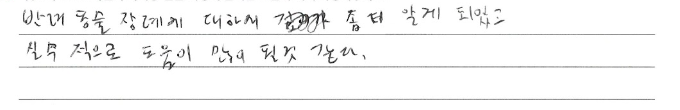 반려 동물 장례에 대하서 좀더 알게 되었고
실무 적으로 도움이 많이 될것 같다.